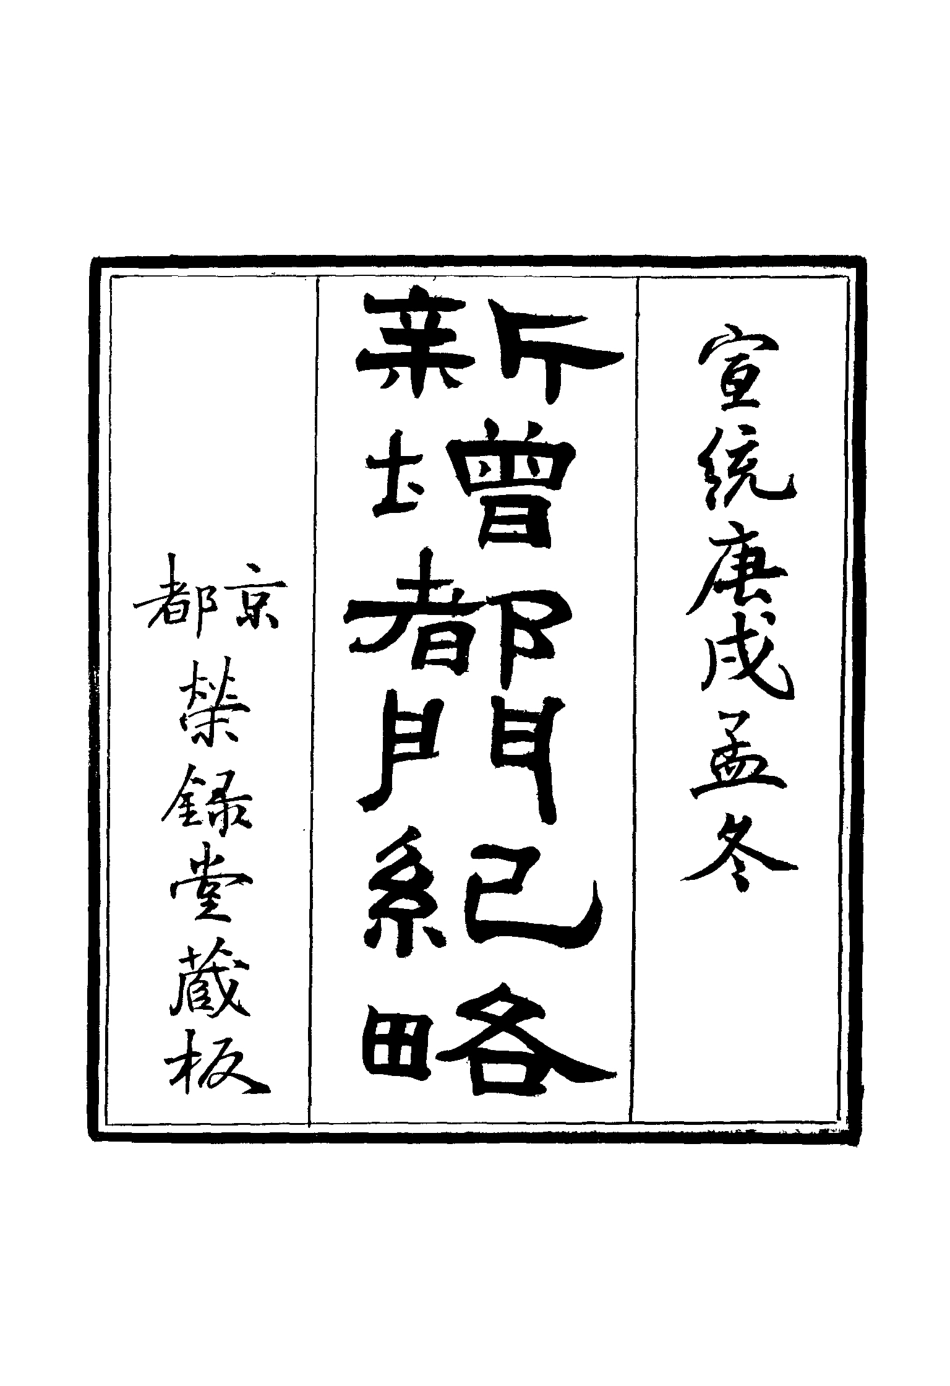 宣統庚戌孟冬
新增都門紀略
京都榮録堂蔵板